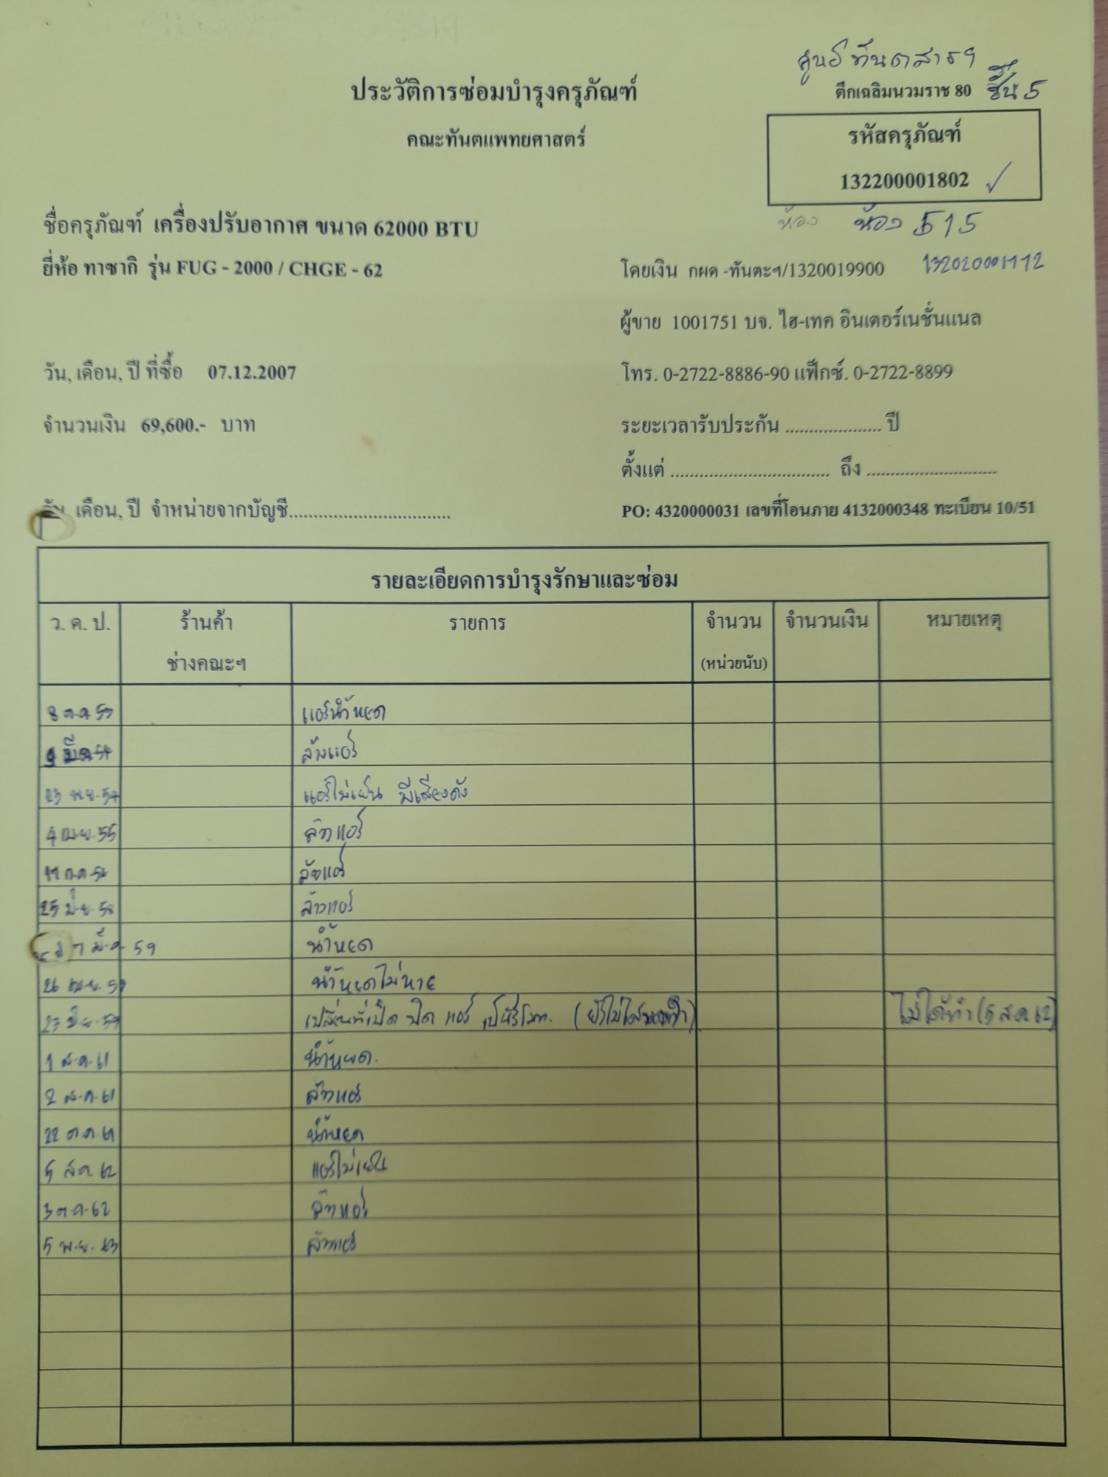 ศูนย์ทันตสาร
ประวัติการซ่อมบำรุงครุภัณฑ์
ตึกเฉลิมนวมราช 80 ชั้น 5
คณะทันตแพทยศาสตร์
รหัสครุภัณฑ์
132200001802 ✓
ห้อง ห้อง 515
ชื่อครุภัณฑ์ เครื่องปรับอากาศ ขนาด 62000 BTU
ยี่ห้อ ทาซากิ รุ่น FUG - 2000 / CHGE - 62
โดยเงิน กผด -ทันตะฯ/1320019900
ผู้ขาย 1001751 บจ. ไฮ-เทค อินเตอร์เนชั่นแนล
วัน, เดือน, ปี ที่ซื้อ 07.12.2007
โทร. 0-2722-8886-90 แฟ็กซ์. 0-2722-8899
จำนวนเงิน 69,600.- บาท
ระยะเวลารับประกัน .................... ปี
ตั้งแต่ ................................ ถึง ...........................
วัน, เดือน, ปี จำหน่ายจากบัญชี.................................
PO: 4320000031 เลขที่โอนภาย 4132000348 ทะเบียน 10/51
รายละเอียดการบำรุงรักษาและซ่อม
ว. ด. ป. ร้านค้า รายการ จำนวน จำนวนเงิน หมายเหตุ
ช่างคณะฯ (หน่วยนับ)
แอร์น้ำหยด
ล้างแอร์
23 พ.ย. 54 แอร์ไม่เย็น มีเสียงดัง
4 เม.ย. 55 ล้างแอร์
ล้างแอร์
25 มิ.ย. 58 ล้างแอร์
มี.ค. 59 น้ำหยด
26 เม.ย. 59 น้ำหยดไม่หาย
23 มิ.ย. 59 เปลี่ยนที่เปิด ปิด แอร์ เป็นรีโมท ไม่ได้ทำ (5 ส.ค. 62)
1 ส.ค. 61 น้ำหยด
2 ส.ค. 61 ล้างแอร์
22 ต.ค. 61 น้ำหยด
5 ส.ค. 62 แอร์ไม่เย็น
3 ต.ค. 62 ล้างแอร์
5 พ.ย. 63 ล้างแอร์